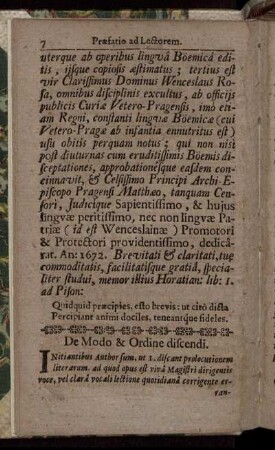 7 Præfatio ad Lectorem.
uterque ab operibus lingvâ Boëmicâ edi-
tis, ijsque copiosis æstimatus; tertius est
vir Clarissimus Dominus Wenceslaus Ro-
sa, omnibus disciplinis excultus, ab officijs
publicis Curiæ Vetero-Pragensis, imò eti-
am Regni, constanti lingvæ Boëmicæ (cui
Vetero-Pragæ ab infantia ennutritus est)
usu obitis perquam notus: qui non nisi
post diuturnas cum eruditissimis Boëmis di-
sceptationes, approbationesque easdem con-
cinnavit, & Celsissimo Principi Archi-E-
piscopo Pragensi Matthæo, tanquam Cen-
sori, Judicique Sapientissimo, & hujus
lingvæ peritissimo, nec non lingvæ Pa-
triæ (id est Wenceslainæ) Promotori
& Protectori providentissimo, dedicâ-
rat. An: 1672. Brevitati & claritati, tuæ
commoditatis, facilitatisque gratiâ, specia-
liter studui, memor illius Horatian: lib: 1.
ad Pison:
Quidquid præcipies, esto brevis: ut citò dicta
Percipiant animi dociles, teneantque fideles.
De Modo & Ordine discendi.
INitiantibus Author sum, ut 1. discant prolocutionem
literarum, ad quod opus est vivâ Magistri dirigentis
voce, vel clarâ vocali lectione quotidianâ corrigente er-
ran-